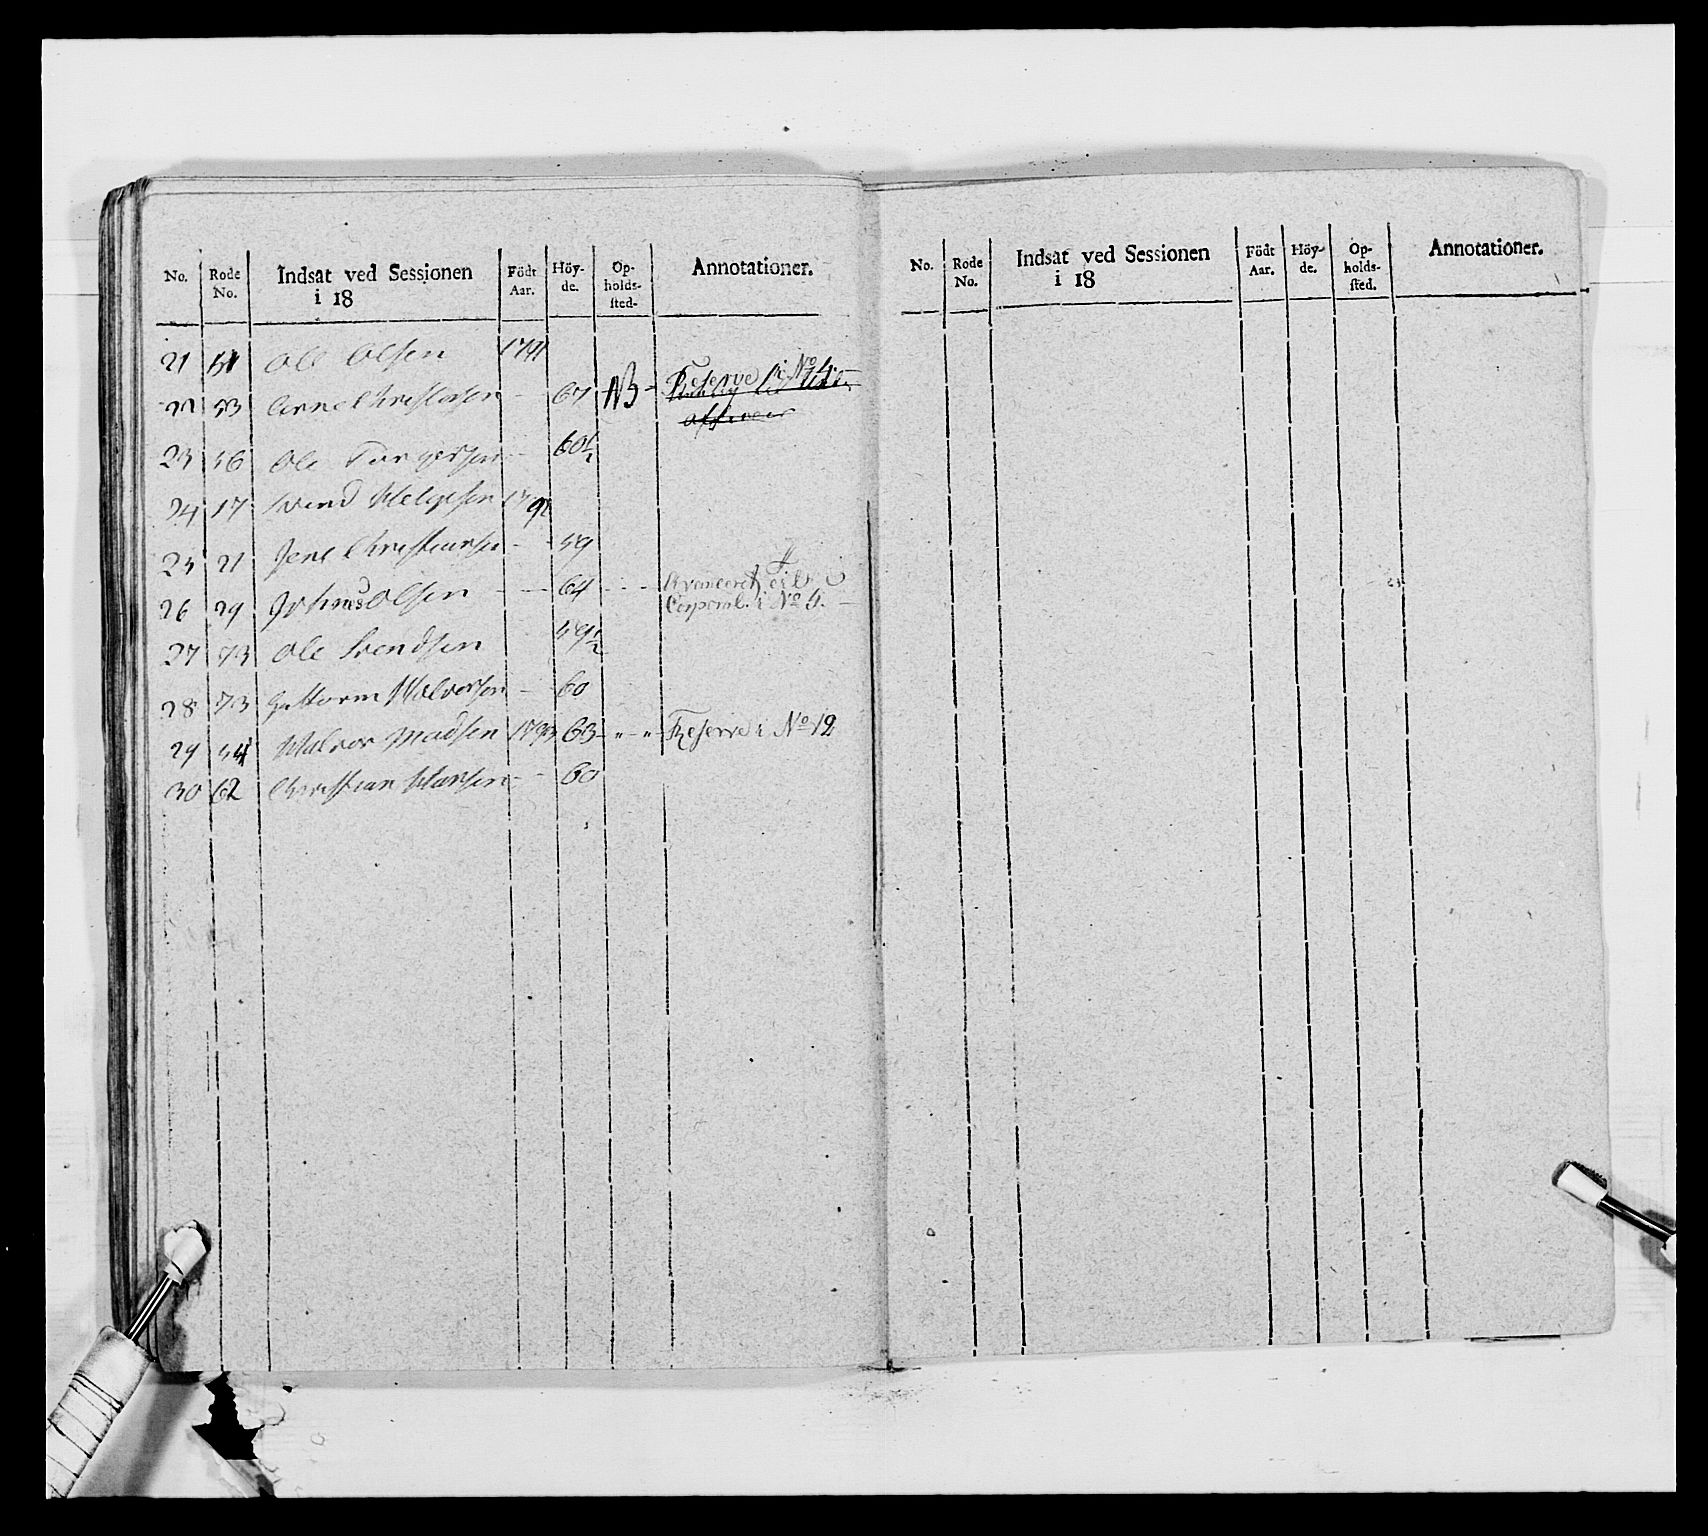 No. Rode No. Indsat ved Sessionen i 18 Födt Aar. Höy-de. Op-holds-sted. Annotationer.
21 51 Ole Olsen 1791
22 53 Christensen - 67 NB - Reserve i No 5.
23 56 Ole Torgersen - 60½
24 17 Svend Helgesen 1792
25 21 Jens Christiansen - 59
26 29 Johnes Olsen - 64 - Avanceret til
Corporal i No 5.
27 73 Ole Svendsen 59½
28 73 Guttorm Halvorsen - 60
29 54 Halvor Madsen 1793 63 - " - " - Reserve i No 12
30 62 Christian Hansen - 60
No. Rode No. Indsat ved Sessionen i 18 Födt Aar. Höy-de. Op-holds-sted. Annotationer.